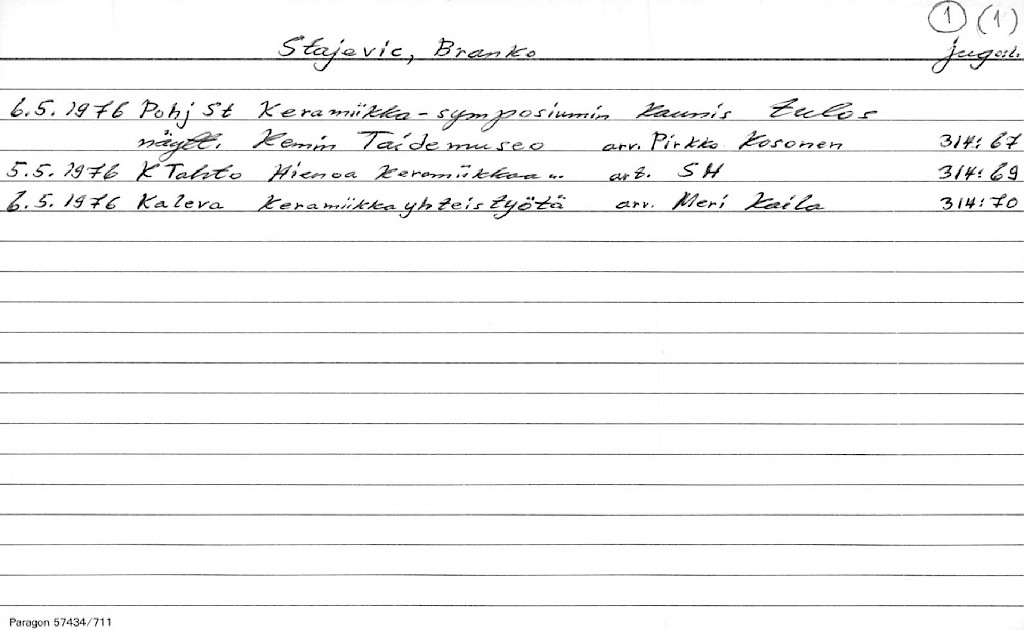 ① (1)
Stajevic, Branko jugosl.
6.5.1976 Pohj St Keramiikka-symposiumin kaunis tulos
näytt. Kemin Taidemuseo arv. Pirkko Kosonen 314:67
5.5.1976 K Tahto Hienoa keramiikkaa... art. SH 314:69
6.5.1976 Kaleva Keramiikkayhteistyötä arv. Meri Kaila 314:70
Paragon 57434/711